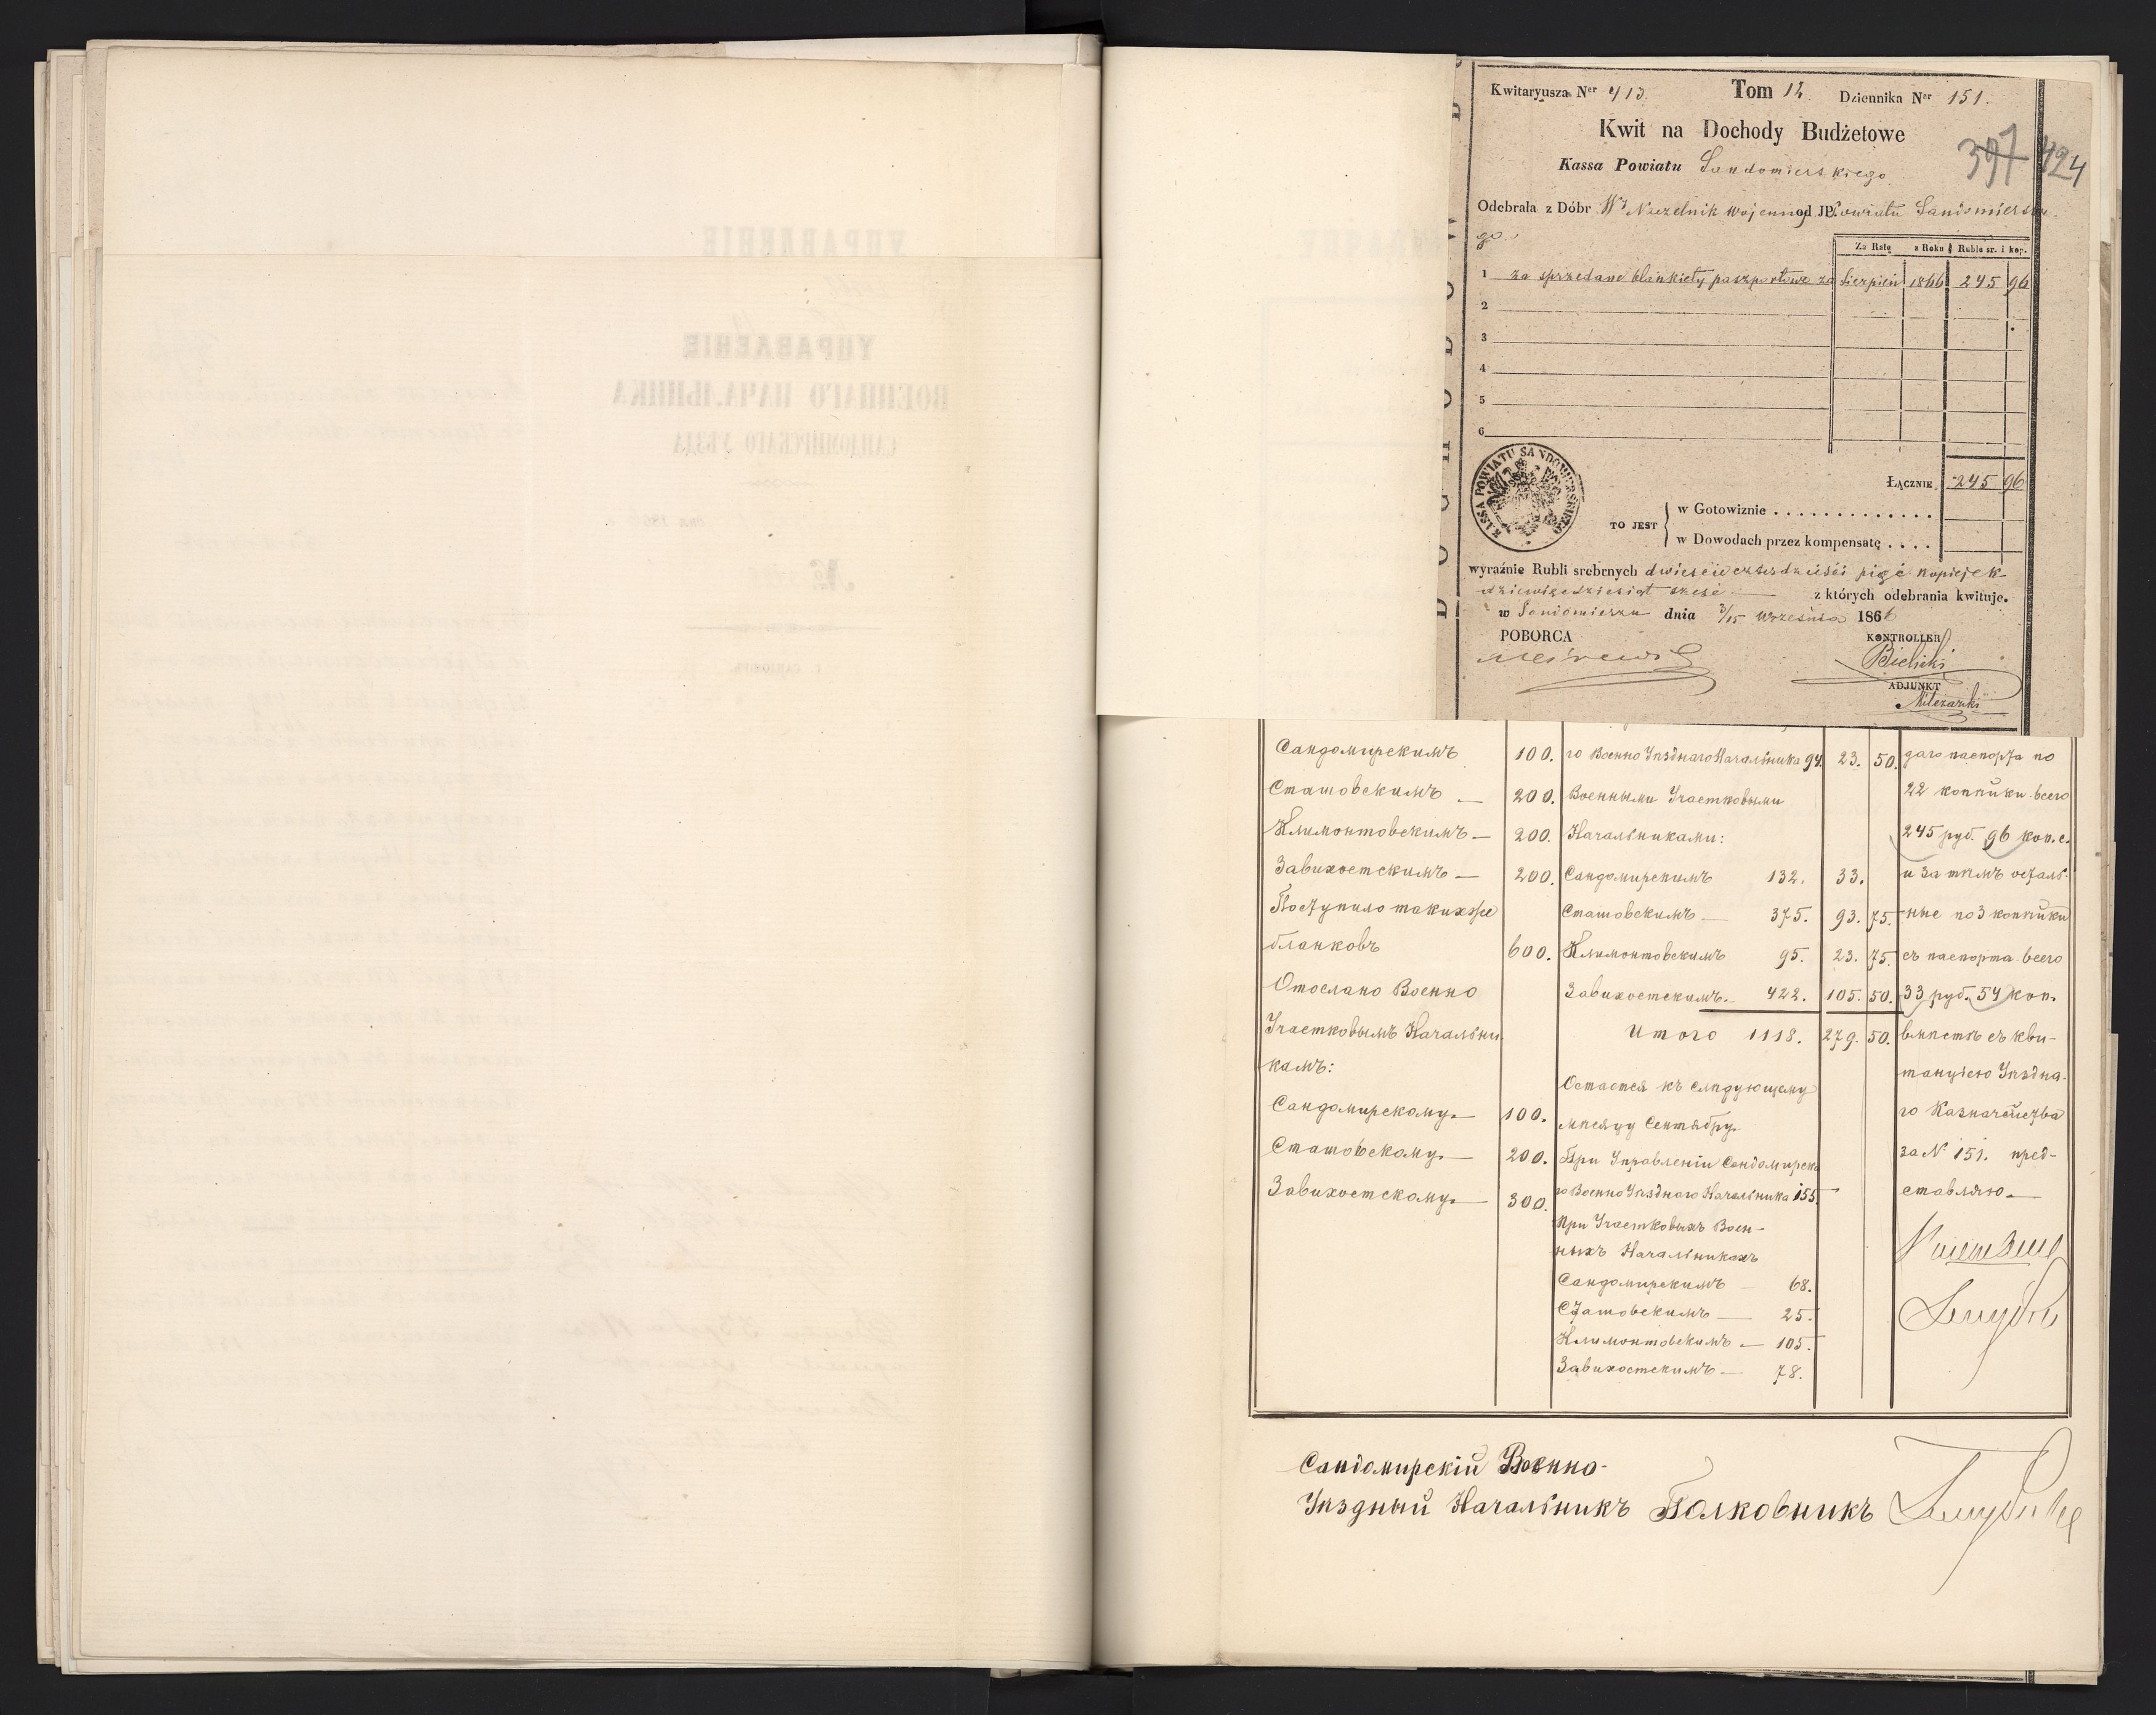 Kwitaryusza Ner 413. Tom 12 Dziennika Ner 151.
Kwit na Dochody Budżetowe
397 424
Kassa Powiatu Sandomierskiego
Odebrała z Dóbr Wy Naczelnik Wojenny od JP. Powiatu Sandomierskie-
go.
Za Ratę z Roku Ruble sr. i kop.
1 za sprzedane blankiety paszportowe za Sierpień 1866 245 96
2
3
4
5
6
KASSA POWIATU SANDOMIERSKIEGO
Łącznie 245 96
TO JEST
w Gotowiznie
w Dowodach przez kompensatę
wyraźnie Rubli srebrnych dwieście czterdzieści pięć kopiejek
dziewięćdziesiąt sześć z których odebrania kwituje.
w Sandomierzu dnia 3/15 Września 1866
POBORCA KONTROLLER
Bielicki
ADJUNKT
Сандомирскимъ 100.
Сташовскимъ — 200.
Климонтовскимъ — 200.
Завихостскимъ — 200.
Поступило такихже
бланковъ 600.
Отослано Военно
Участковымъ Начальни
камъ:
Сандомирскому. — 100.
Сташовскому. — 200.
Завихостскому. — 300.
го Военно Уѣзднаго Начальника 94. 23. 50.
Военными Участковыми
Начальниками:
Сандомирскимъ 132. 33.
Сташовскимъ — 375. 93. 75.
Климонтовскимъ 95. 23. 75.
Завихостскимъ. — 422. 105. 50.
Итого 1118. 279. 50.
Остается къ слѣдующему
мѣсяцу Сентябрю.
При Управленіи Сандомирска
го Военно Уѣзднаго Начальника 155.
При Участковыхъ Воен-
ныхъ Начальникахъ
Сандомирскимъ — 68.
Сташовскимъ — 25.
Климонтовскимъ — 105.
Завихостскимъ — 78.
даго паспорта по
22 копѣйки всего
245 руб. 96 коп. с.
и за тѣмъ осталь-
ные по 3 копѣйки
съ паспорта всего
33 руб. 54 коп.
вмѣстѣ съ кви-
танціею Уѣздна-
го Казначейства
за № 151. пред-
ставляю. —
Сандомирскій Военно-
Уѣздный Начальникъ Полковникъ